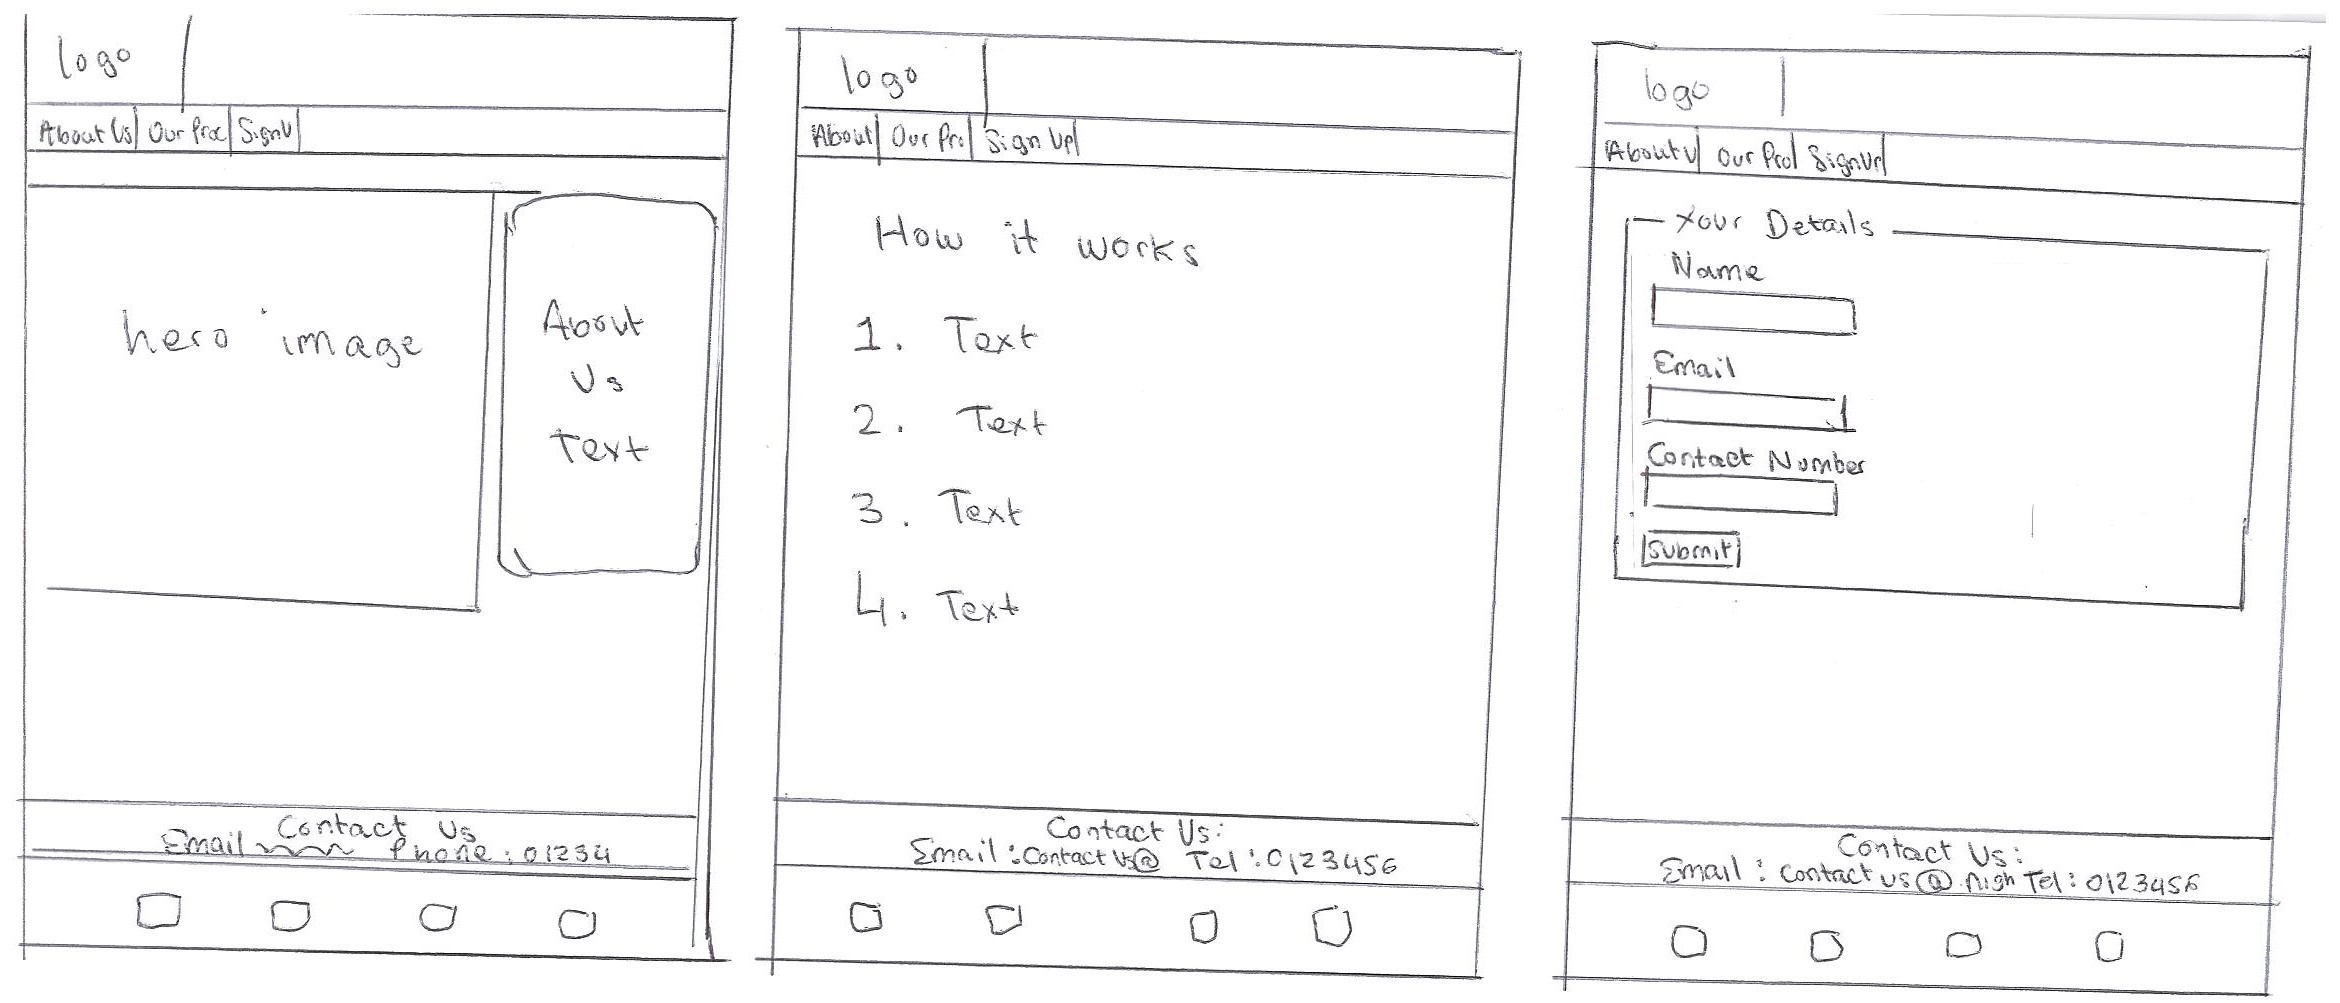 logo
About Us Our Proc SignU
hero image
About
Us
Text
Contact Us
Email Phone : 01234
logo
About Our Pro Sign Up
How it works
1. Text
2. Text
3. Text
4. Text
Contact Us:
Email : Contact Us@ Tel : 0123456
logo
About U Our Pro SignUp
Your Details
Name
Email
Contact Number
Submit
Contact Us:
Email : contact us@ nigh Tel : 0123456